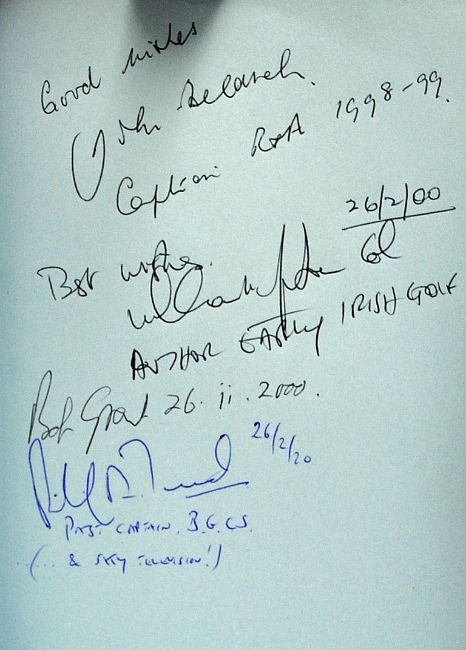 Good wishes
John
Captain R&A 1998-99.
26/2/00
Best wishes.
William Gibson Col
AUTHOR EARLY IRISH GOLF
Bob Grant 26. ii. 2000.
26/2/20
PAST CAPTAIN. B.G.C.S.
(... & SKY TELEVISION!)